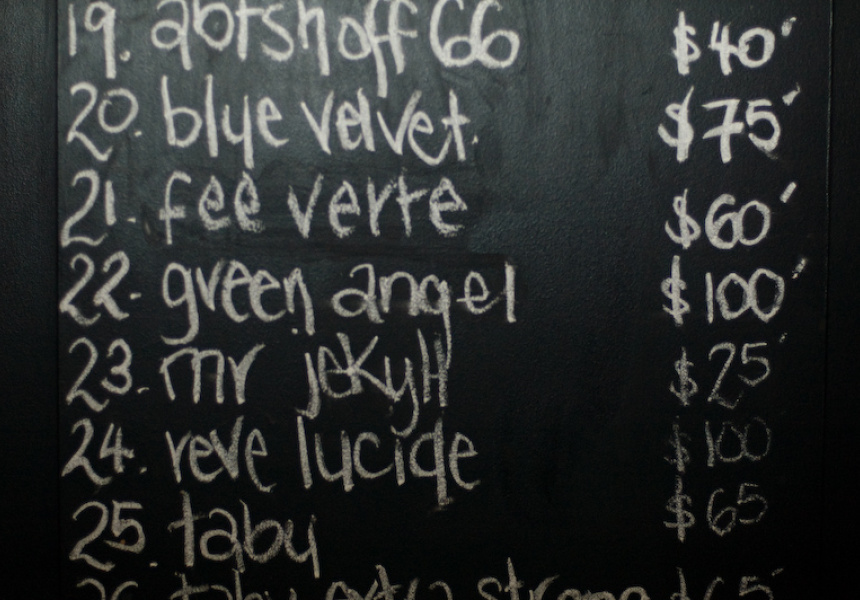 19. abtshoff 66 $40
20. blue velvet. $75
21. fee verte $60
22. green angel $100
23. mr jekyll $25
24. reve lucide $100
25. taby $65
26. taby extra strong $65